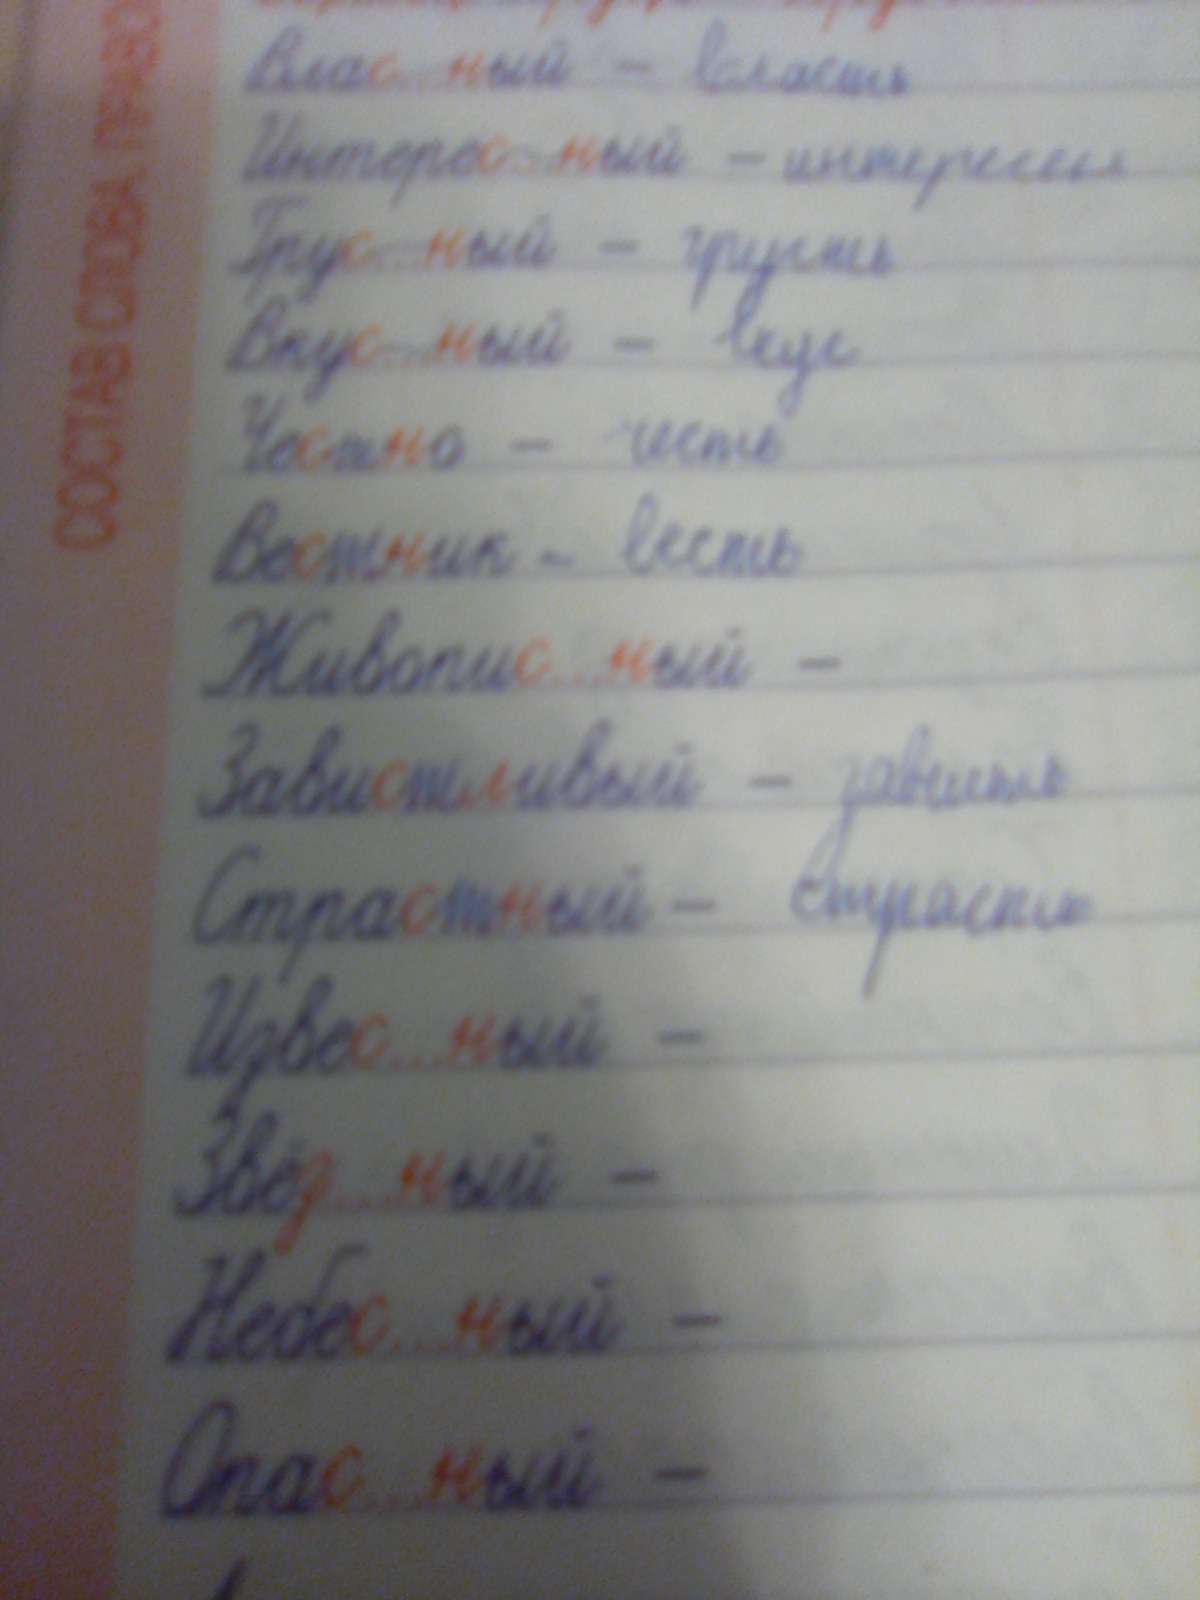 СОСТАВ СЛОВА ПРАВО
Влас...ный - власть
Интерес...ный - интересен
Грус...ный - грусть
Вкус...ный - вкус
Честно - честь
Вестник - весть
Живопис...ный -
Завистливый - зависть
Страстный - страсть
Извес...ный -
Звёз...ный -
Небес...ный -
Опас...ный -